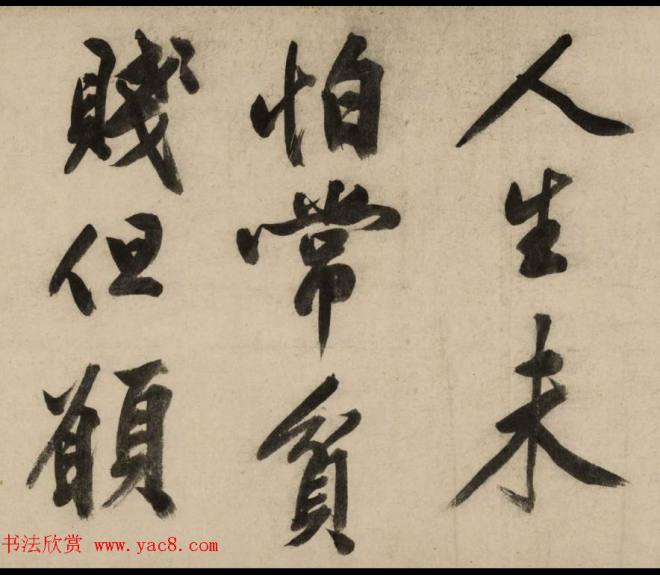 人生未
怕常貧
賤但願
书法欣赏 www.yac8.com